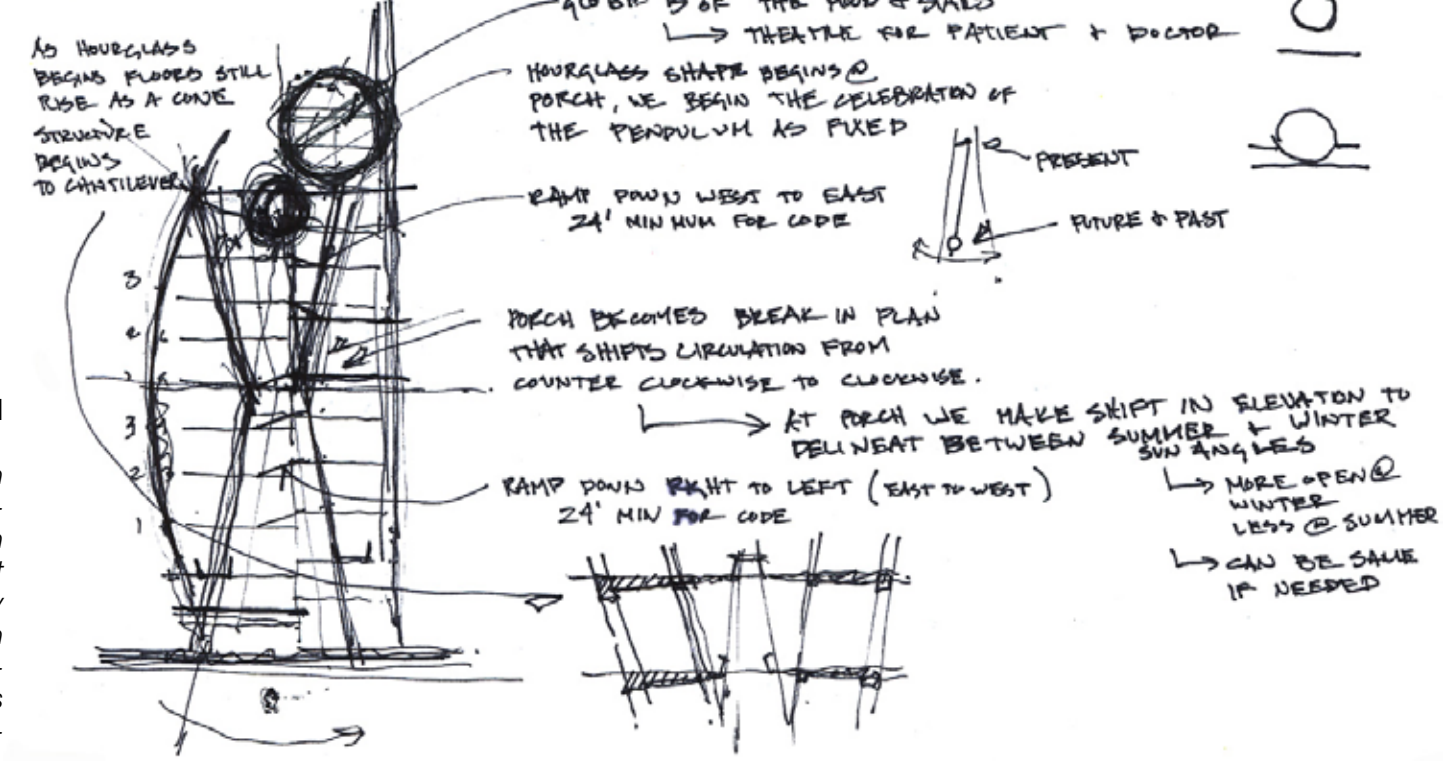 OF THE MOON & STARS
↳ THEATRE FOR PATIENT & DOCTOR
AS HOURGLASS
BEGINS FLOORS STILL
RISE AS A CONE
STRUCTURE
BEGINS
TO CANTILEVER
HOURGLASS SHAPE BEGINS @
PORCH, WE BEGIN THE CELEBRATION OF
THE PENDULUM AS FIXED
PRESENT
FUTURE & PAST
RAMP DOWN WEST TO EAST
24' MINMUM FOR CODE
PORCH BECOMES BREAK IN PLAN
THAT SHIFTS CIRCULATION FROM
COUNTER CLOCKWISE TO CLOCKWISE.
→ AT PORCH WE MAKE SHIFT IN ELEVATION TO
DELINEAT BETWEEN SUMMER & WINTER
SUN ANGLES
↳ MORE OPEN @
WINTER
LESS @ SUMMER
↳ CAN BE SAME
IF NEEDED
RAMP DOWN RIGHT TO LEFT (EAST TO WEST)
24' MIN FOR CODE
3
2
1